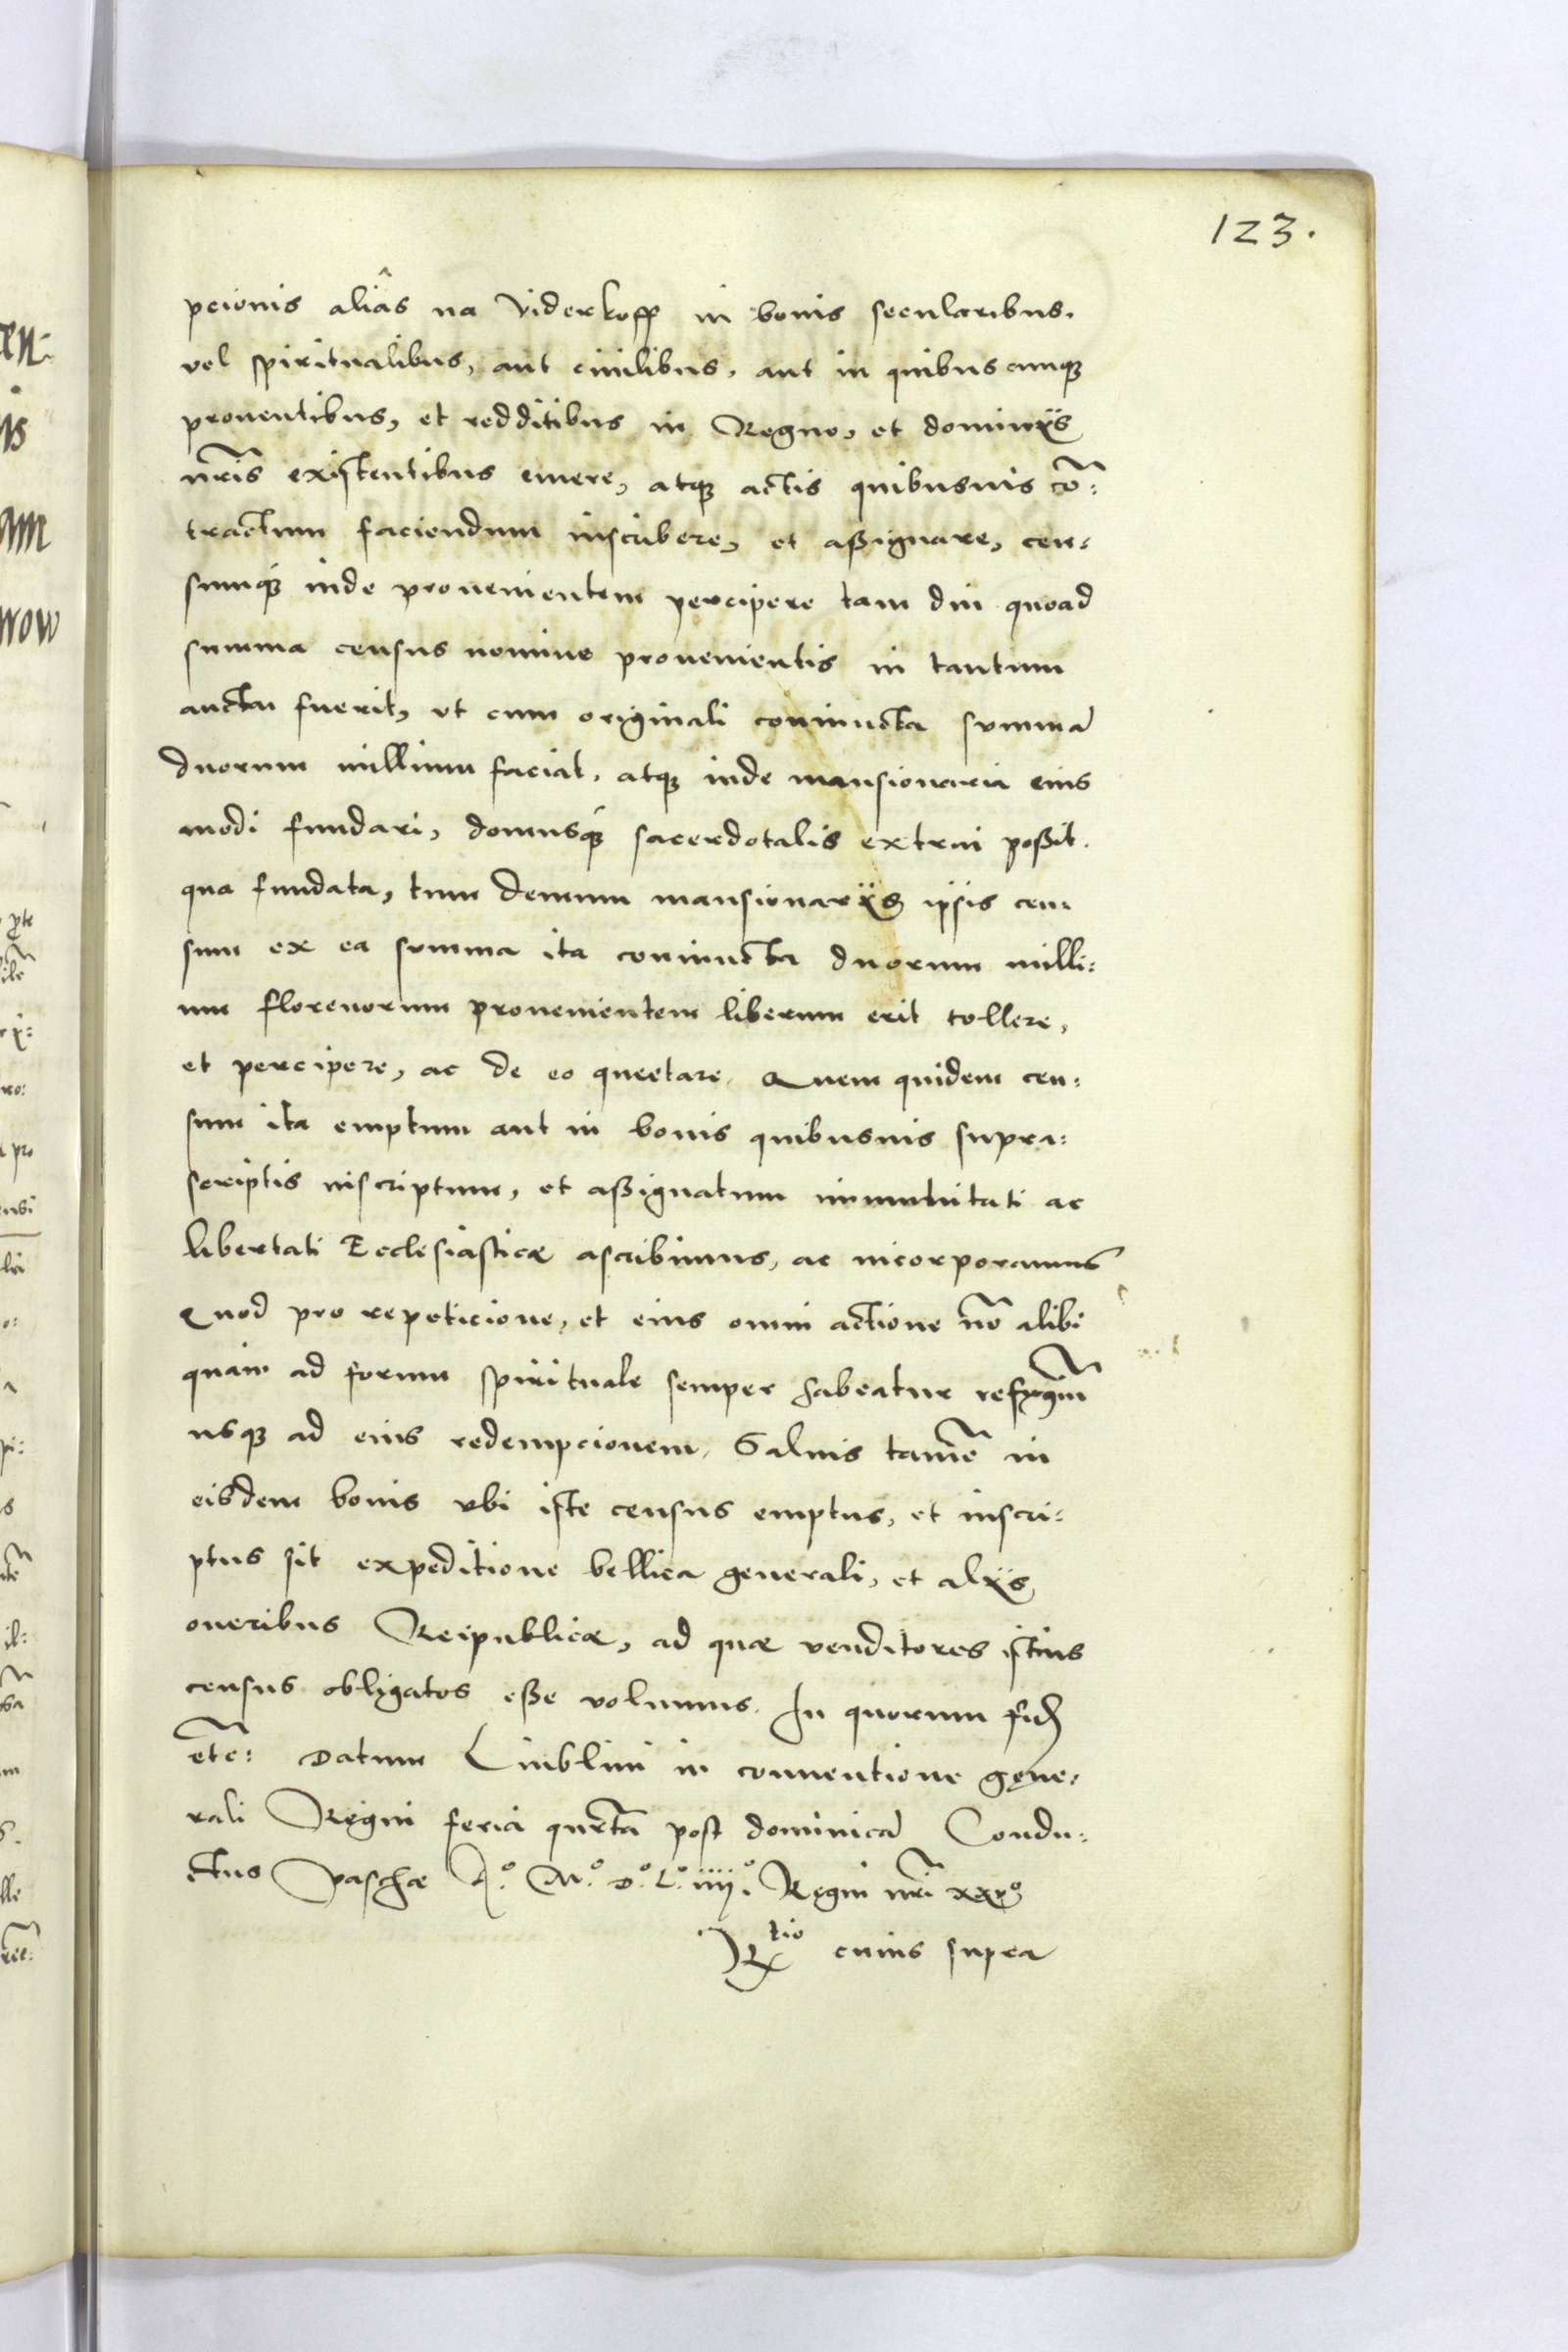 123.
pcionis aliâs na Viderkoff in bonis secularibus.
vel spiritualibus, aut ciuilibus, aut in quibuscunq
prouentibus, et redditibus in Regno, et dominijs
nr̃is existentibus emere, atq actis quibusuis cõ:
tractum faciendum inscribere, et assignare, cen:
sumq́ inde prouenientem percipere tam diu quoad
summa census nomine prouenientis in tantum
aucta fuerit, vt cum originali coniuncta summã
duorum millium faciat, atq inde mansionaria eius
modi fundari, domusq́ sacerdotalis extrui possit.
qua fundata, tum demum mansionarijs ipsis cen:
sum ex ea summa ita coniuncta duorum milli:
um florenorum prouenientem liberum erit tollere,
et percipere, ac de eo queetare. Quem quidem cen:
sum ita emptum aut in bonis quibusuis supra:
scriptis inscriptum, et assignatum immunitati ac
libertati Ecclesiasticæ ascribimus, ac incorporamus
Quod pro repeticione, et eius omni actione nõ alibi
quam ad forum spirituale semper habeatur refugium̃
usq ad eius redempcionem. Saluis tamẽ in
eisdem bonis vbi iste census emptus, et inscri:
ptus sit expeditione bellica generali, et alijs
oneribus Reipublicæ, ad quæ venditores istius
census obligatos esse volumus. In quorum fid
etc̃: Datum Liublini in conuentione gene:
rali Regni feria quarta post dominicã Condu:
ctus Paschæ A.° M.° D.° L.° iiij.° Regni nr̃i xxv°
R^tio cuius supra